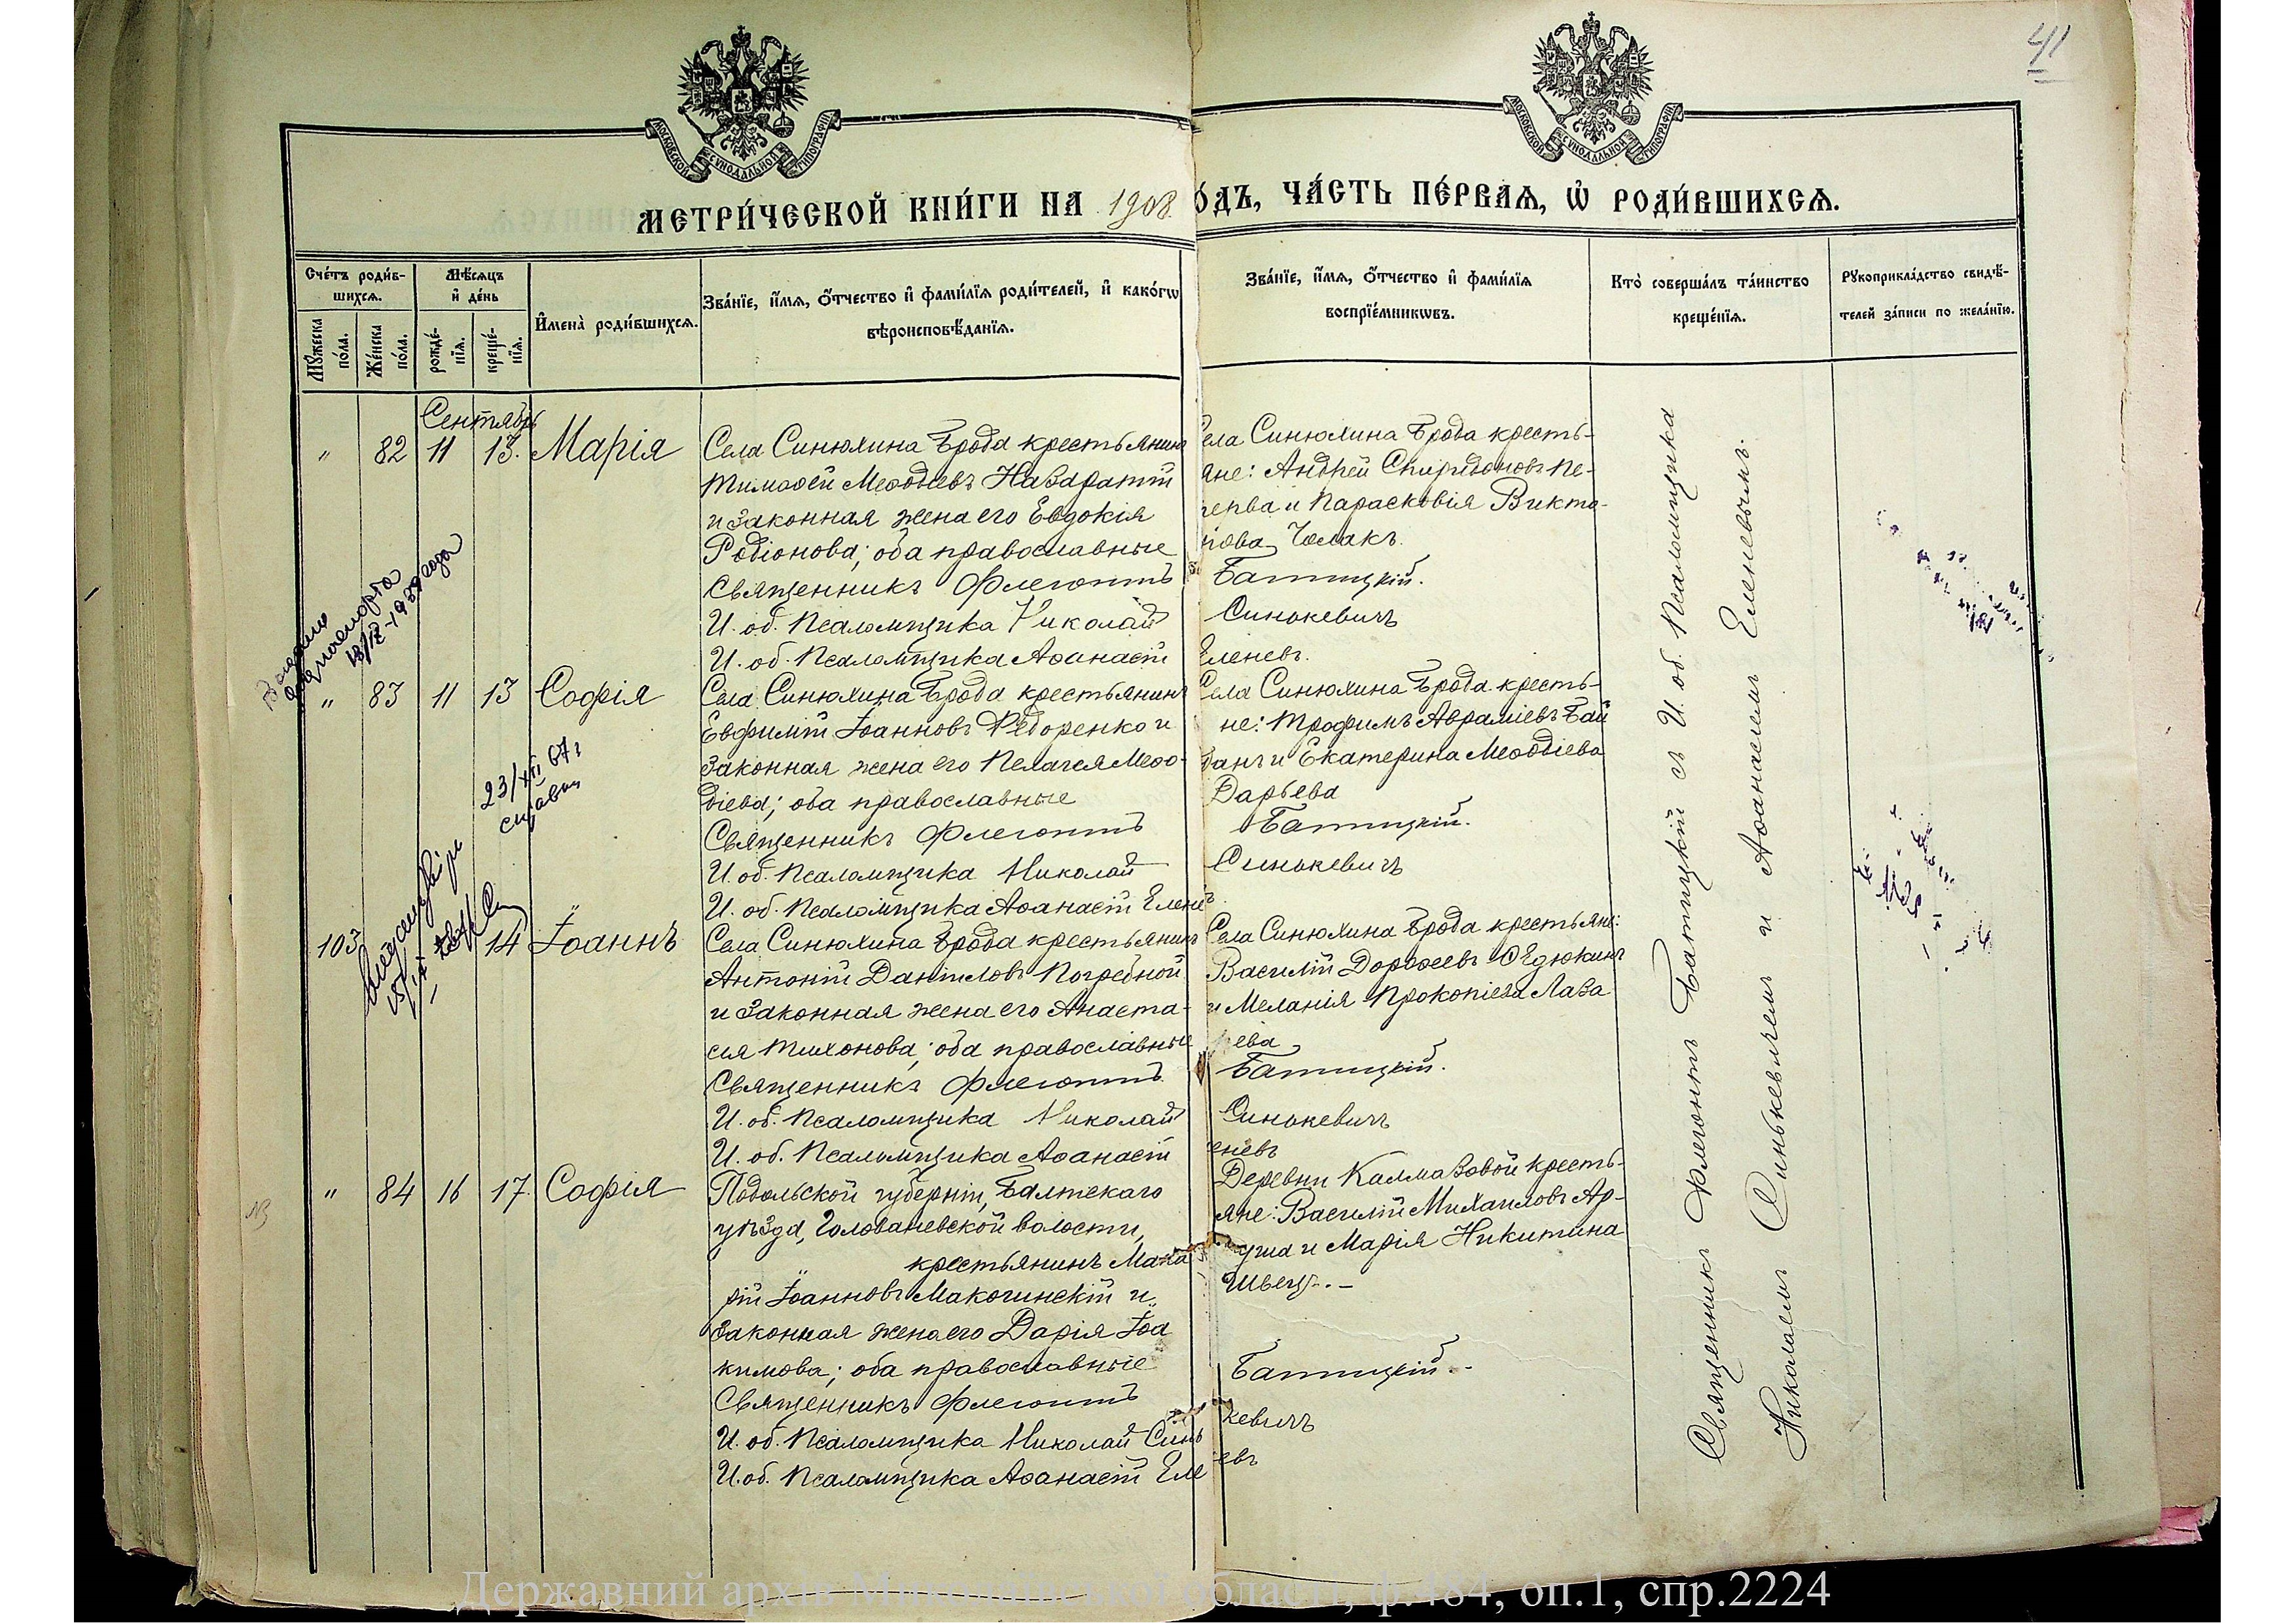 41
МОСКОВСКОЙ СѴНОДАЛЬНОЙ ТИПОГРАФІИ
МОСКОВСКОЙ СѴНОДАЛЬНОЙ ТИПОГРАФІИ
МЕТРИ́ЧЕСКОЙ КНИ́ГИ НА 1908
О́ДЪ, ЧА́СТЬ ПЕ́РВАѦ, Ѡ҆ РОДИ́ВШИХСѦ.
Сче́тъ роди́в-
шихсѧ.
Мꙋ́жеска
по́ла.
Же́нска
по́ла.
Мѣ́сѧцъ
и҆ де́нь
рожде́-
нїѧ.
креще́-
нїѧ.
И҆мена̀ роди́вшихсѧ.
Зва́нїе, и҆́мѧ, ѻ҆́тчество и҆ фами́лїѧ роди́телей, и҆ како́гѡ
вѣроисповѣ́данїѧ.
Зва́нїе, и҆́мѧ, ѻ҆́тчество и҆ фами́лїѧ
воспрїе́мникѡвъ.
Кто̀ соверша́лъ та́инство
креще́нїѧ.
Рꙋкоприкла́дство свидѣ́-
телей за́писи по жела́нїю.
Сентябрь
" 82 11 13. Марія
Села Синюхина Брода крестьянинъ
Тимоѳей Меѳодіевъ Назаратій
и законная жена его Евдокія
Родіонова; оба православные
Священникъ Флегонтъ
И. об. Псаломщика Николай
И. об. Псаломщика Аѳанасій
Села Синюхина Брода кресть-
яне: Андрей Спиридоновъ Пе-
репва и Парасковія Викто-
рова Чолакъ.
Батицкій.
Синькевичъ
Еленевъ.
13/IX-1939 года
" 83 11 13 София
Села Синюхина Брода крестьянинъ
Евфимій Іоанновъ Ѳедоренко и
законная жена его Пелагея Меѳо-
діева; оба православные
Священникъ Флегонтъ
И. об. Псаломщика Николай
И. об. Псаломщика Аѳанасій Еленев
Села Синюхина Брода кресть-
не: Трофимъ Авраміевъ Бай
банъ и Екатерина Меѳодіева
Дарьева
Батицкій.
Синькевичъ
23/XII 67 г
справка
103 14 Іоаннъ
Села Синюхина Брода крестьянинъ
Антоній Даніиловъ Погребной
и законная жена его Анаста-
сія Тихонова; оба православные
Священникъ Флегонтъ
И. об. Псаломщика Николай
И. об. Псаломщика Аѳанасій
Села Синюхина Брода крестьяне:
Василій Дороѳеевъ Ѳедюкинъ
и Меланія Прокопіева Лаза
рева
Батицкій.
Синькевичъ
еневъ
" 84 16 17. Софія
Подольской губерніи, Балтскаго
уѣзда, Голованевской волости,
крестьянинъ Мака
рій Іоанновъ Макогинскій и
законная жена его Дарія Іоа
кимова; оба православные
Священникъ Флегонтъ
И. об. Псаломщика Николай Синь
И. об. Псаломщика Аѳанасій Еле
Деревни Калмазовой кресть-
яне: Василій Михаиловъ Ар-
уша и Марія Никитина
Швецъ.-
Батицкій.
кевичъ
евъ
Священникъ Флегонтъ Батицкій съ И. об. Псаломщика
Николаемъ Синькевичемъ и Аѳанасіемъ Еленевымъ.
Державний архів Миколаївської області, ф.484, оп.1, спр.2224